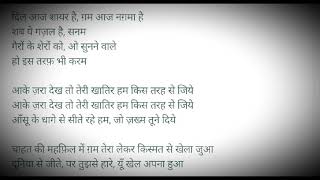 दिल आज शायर है, ग़म आज नग़मा है
शब ये गज़ल है, सनम
गैरों के शेरों को, ओ सुनने वाले
हो इस तरफ़ भी करम
आके ज़रा देख तो तेरी खातिर हम किस तरह से जिये
आके ज़रा देख तो तेरी खातिर हम किस तरह से जिये
आँसू के धागे से सीते रहे हम, जो ज़ख्म तूने दिये
चाहत की महफ़िल में ग़म तेरा लेकर किस्मत से खेला जुआ
दुनिया से जीते, पर तुझसे हारे, यूँ खेल अपना हुआ